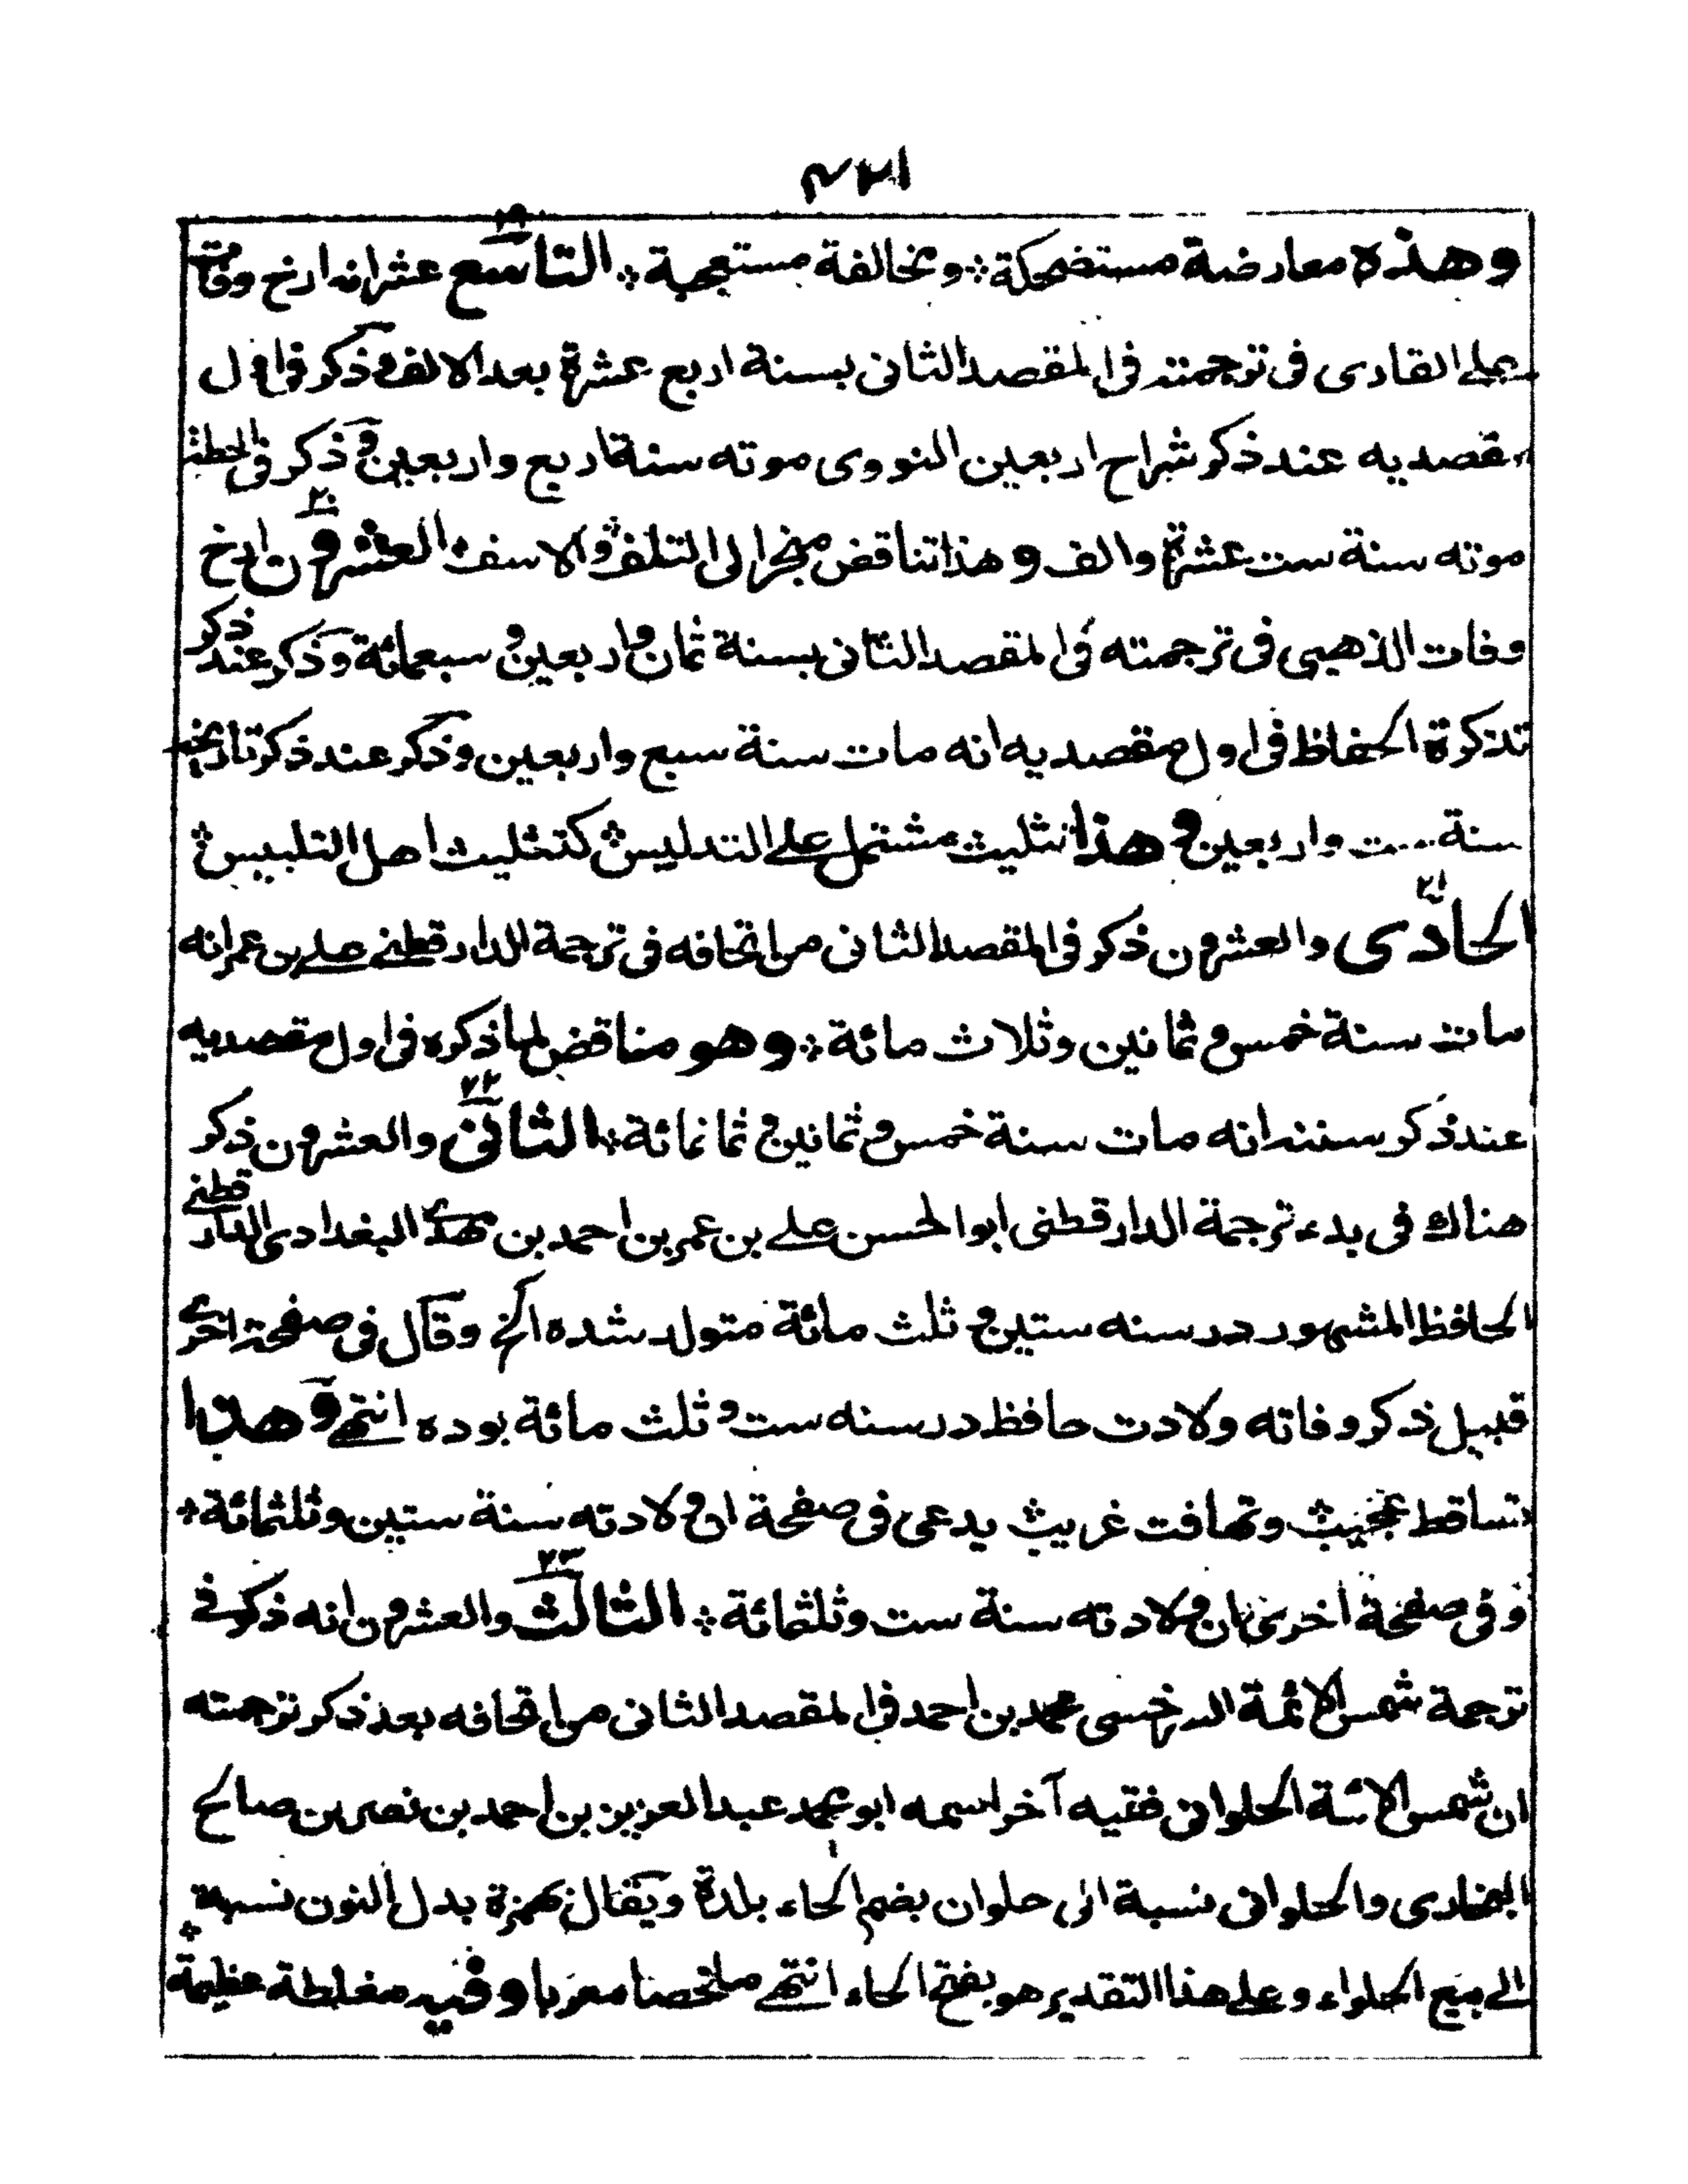 وهذه معارضة مستضحكة ۞ ومخالفة مستعجبة ۞ التاسع عشر انه ارخ وفات
١٩
على القارى فى ترجمته فى المقصد الثانى بسنة اربع عشرة بعد الالف وذكر فى اول
مقصديه عند ذكر شراح اربعين النووى موته سنة اربع واربعين وذكر فى الحطة
موته سنة ست عشرة والف وهذا تناقض منجر الى التلف والاسف العشرون ارخ
٢٠
وفات الذهبى فى ترجمته فى المقصد الثانى بسنة ثمان واربعين وسبعمائة وذكر عند ذكر
تذكرة الحفاظ فى اول مقصديه انه مات سنة سبع واربعين وذكر عند ذكر تاريخه
سنة ست واربعين وهذا تثليث مشتمل على التدليس كتثليث اهل التلبيس
٢١
الحادى والعشرون ذكر فى المقصد الثانى من اتحافه فى ترجمة الدارقطنى على بن عمر انه
مات سنة خمس وثمانين وثلاث مائة ۞ وهو مناقض لما ذكره فى اول مقصديه
٢٢
عند ذكر سننه انه مات سنة خمس وثمانين وثمانمائة ۞ الثانى والعشرون ذكر
هناك فى بدء ترجمة الدارقطنى ابوالحسن على بن عمر بن احمد بن مهدى البغدادى الدارقطنى
الحافظ المشهور در سنه ستين وثلث مائة متولد شده الخ وقال فى صفحة اخرى
قبيل ذكر وفاته ولادت حافظ در سنه ست وثلث مائة بوده انتهى وهذا
تساقط عجيب وتهافت غريب يدعى فى صفحة ان ولادته سنة ستين وثلثمائة ۞
٢٣
وفى صفحة اخرى ان ولادته سنة ست وثلثمائة ۞ الثالث والعشرون انه ذكر فى
ترجمة شمس الائمة السرخسى محمد بن احمد فى المقصد الثانى من اتحافه بعد ذكر ترجمته
ان شمس الائمة الحلوانى فقيه آخر اسمه ابو محمد عبد العزيز بن احمد بن نصر بن صالح
البخارى والحلوانى نسبة الى حلوان بضم الحاء بلدة ويقال بهمزة بدل النون نسبة
الى بيع الحلواء وعلى هذا التقدير هو بفتح الحاء انتهى ملخصا معربا وفيه مغلطة عظيمة